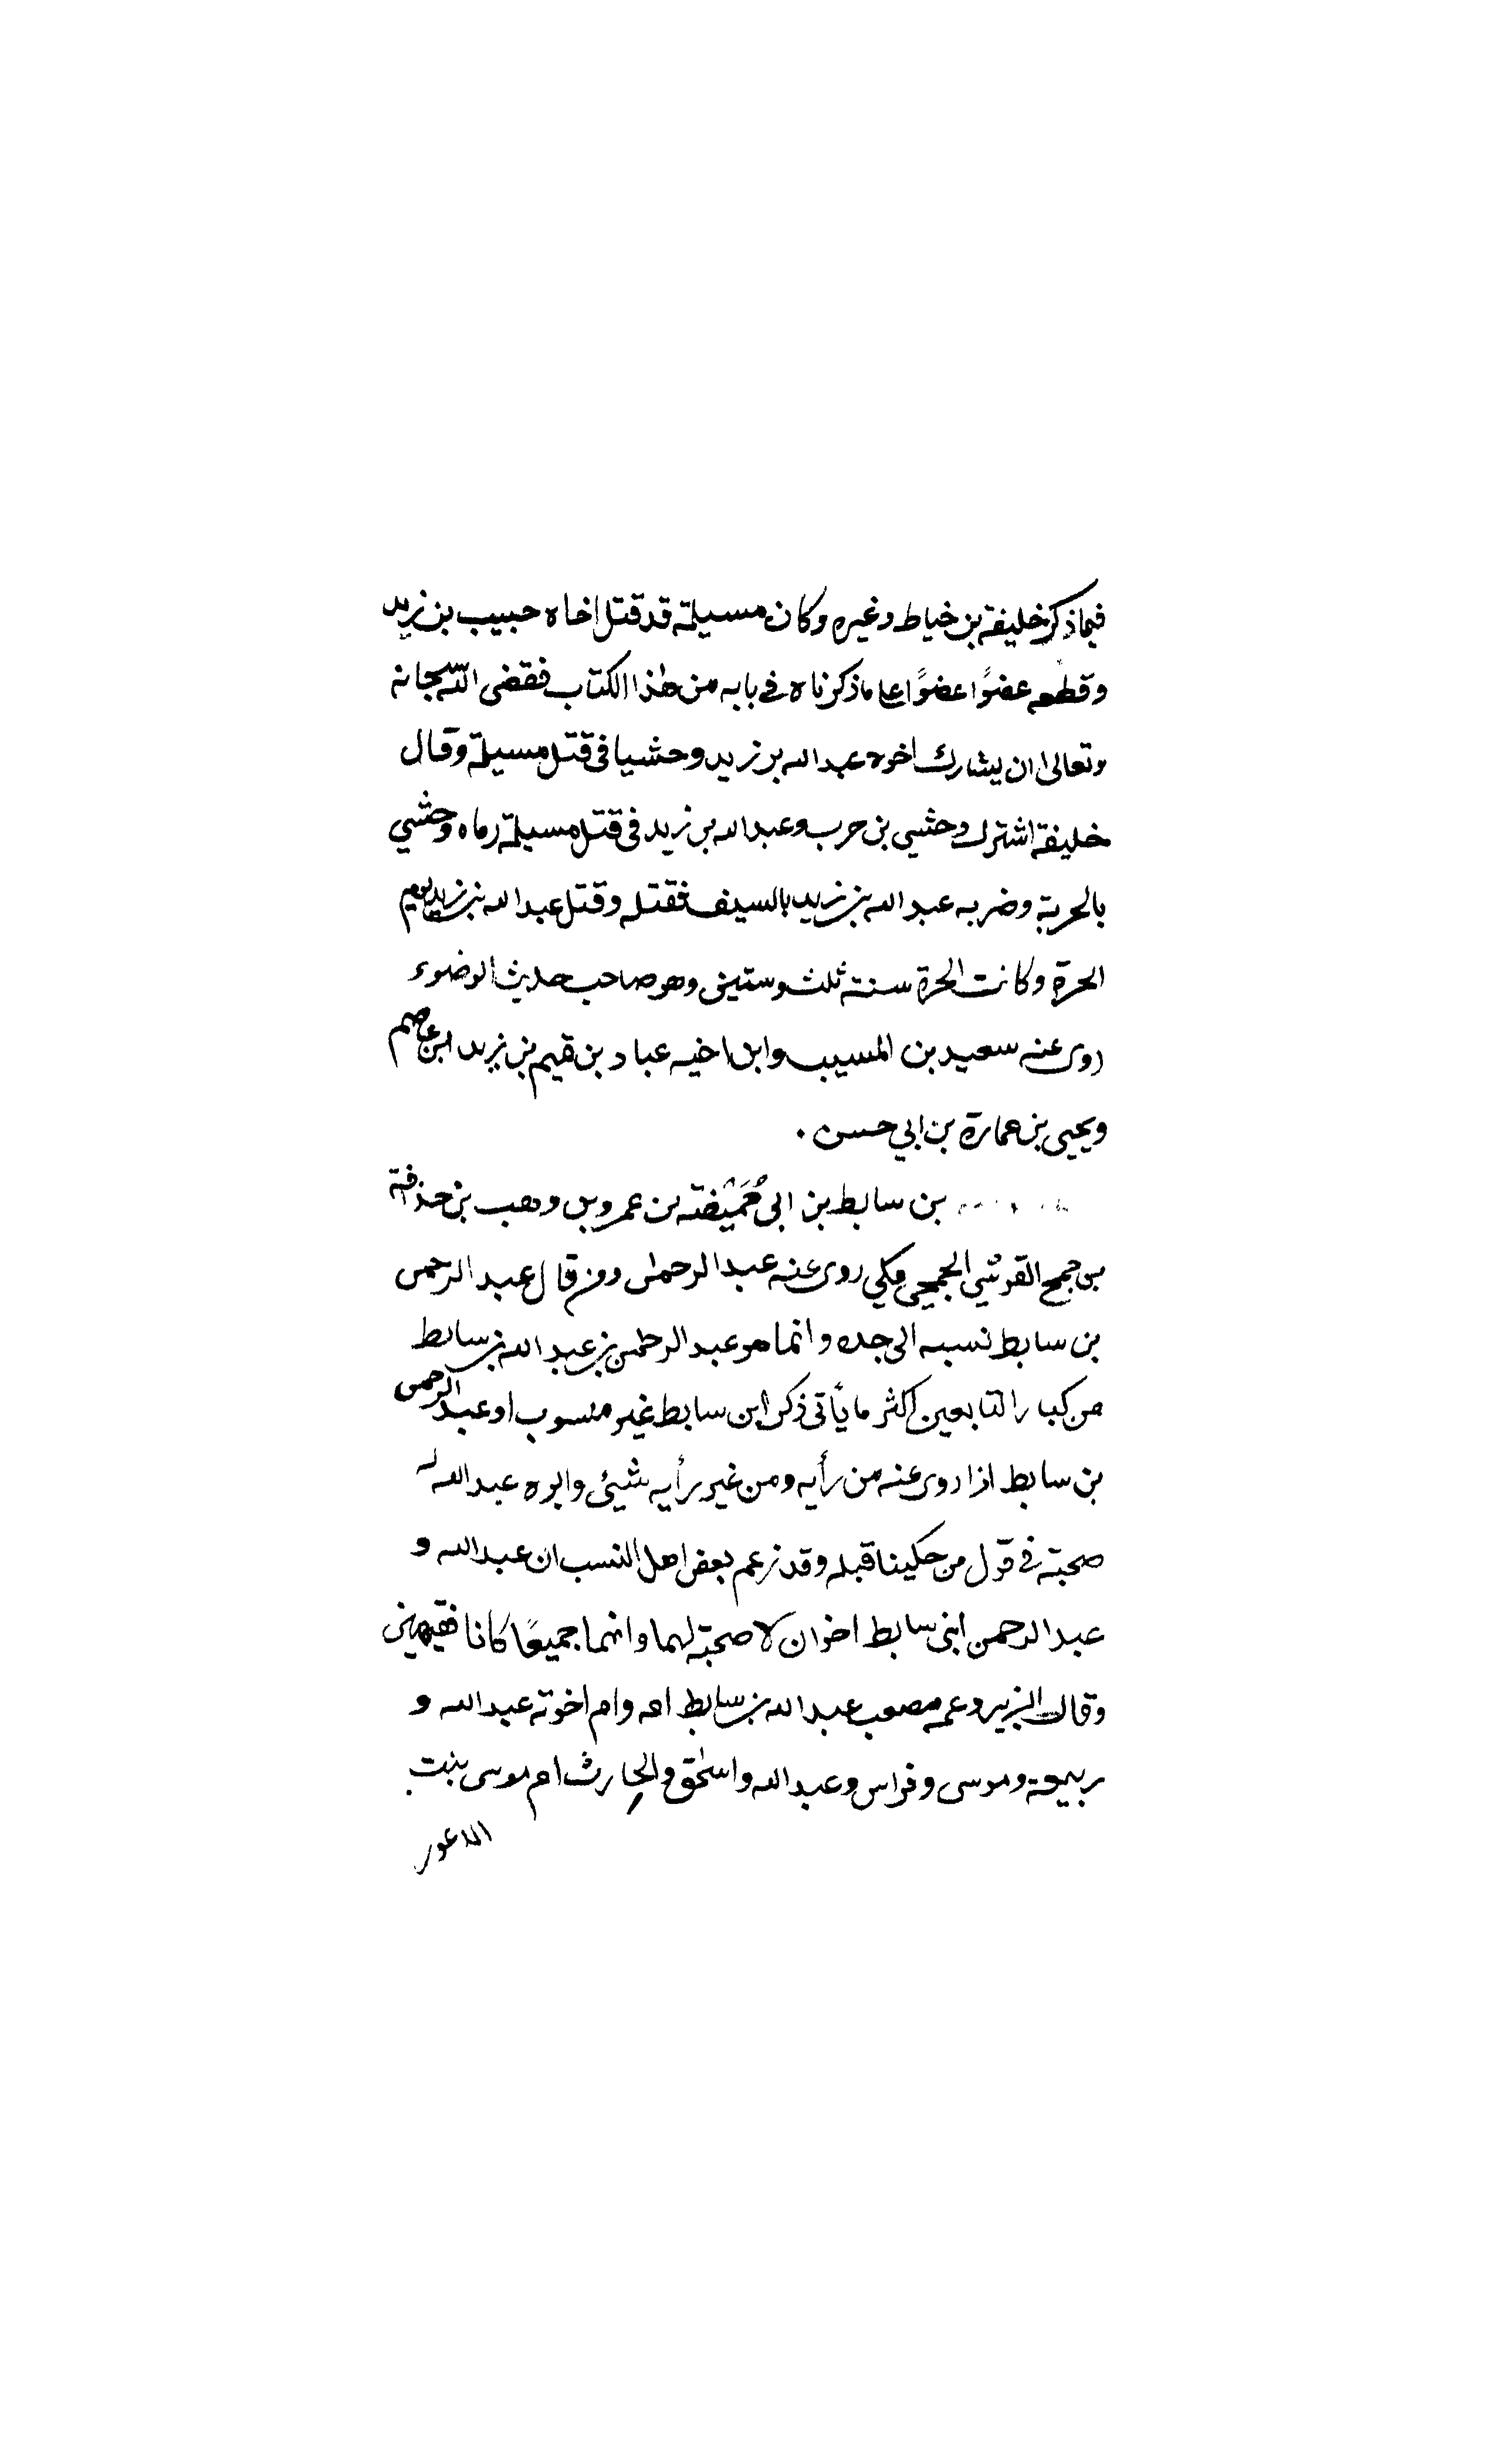 فيما ذكر خليفة بن خياط وغيره وكان مسيلمة قد قتل اخاه حبيب بن زيد
وقطعه عضوًا عضوًا على ما ذكرناه في بابه من هذا الكتاب فقضى الله سبحانه
وتعالى ان يشارك اخوه عبد الله بن زيد وحشيا في قتل مسيلمة وقال
خليفة اشترك وحشي بن حرب وعبد الله بن زيد في قتل مسيلمة رماه وحشي
بالحربة وضربه عبد الله بن زيد بالسيف فقتله وقتل عبد الله بن زيد يوم
الحرة وكانت الحرة سنة ثلث وستين وهو صاحب حديث الوضوء
روى عنه سعيد بن المسيب وابن اخيه عباد بن تميم بن زيد ابن عاصم
ويحيى بن عمارة بن ابي حسن .
بن سابط بن ابي حُمَيْضة بن عمرو بن وهب بن حذافة
بن جمح القرشي الجمحي مكي روى عنه عبد الرحمن ومن قال عبد الرحمن
بن سابط نسبه الى جده وانما هو عبد الرحمن بن عبد الله بن سابط
من كبار التابعين اكثر ما يأتى ذكر ابن سابط غير منسوب او عبد الرحمن
بن سابط اذا روى عنه من رأيه ومن غير رأيه شيئ وابوه عبد الله له
صحبة في قول من حكينا قبله وقد زعم بعض اهل النسب ان عبد الله و
عبد الرحمن ابنى سابط اخوان لا صحبة لهما وانهما جميعًا كانا فقيهين
وقال الزبير وعمه مصعب عبد الله بن سابط امه وام اخوته عبد الله و
ربيعة وموسى وفراس وعبد الله واسحٰق والحارث ام موسى بنت
الاعور